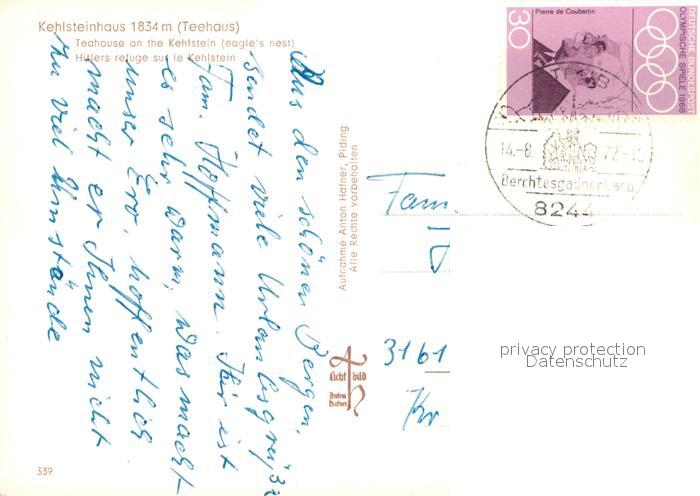 Kehlsteinhaus 1834 m (Teehaus)
Teahouse on the Kehlstein (eagle's nest)
Hitlers refuge sur le Kehlstein
Aus den schönen Bergen,
sendet viele Urlaubsgrüße
Fam. Hoffmann. Hier ist
es sehr warm, was macht
unser Ero, hoffentlich
macht er Ihnen nicht
zu viel Umstände
Aufnahme Anton Hafner, Piding
Alle Rechte vorbehalten
licht bild
Anton
Hafner
339
Pierre de Coubertin
30
DEUTSCHE BUNDESPOST
OLYMPISCHE SPIELE 1968
14.-8.
72-1
Berchtesgadner Land
8244
Fam.
3161
privacy protection
Datenschutz